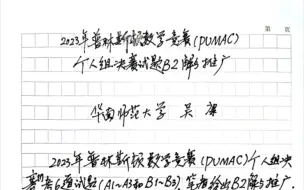 第 页
2023年普林斯顿数学竞赛(PUMAC)
个人组决赛试题B2解与推广
华南师范大学 吴康
2023年普林斯顿数学竞赛(PUMAC)个人组决
赛共6道试题(A1~A3和B1~B3).笔者给出B2解与推广